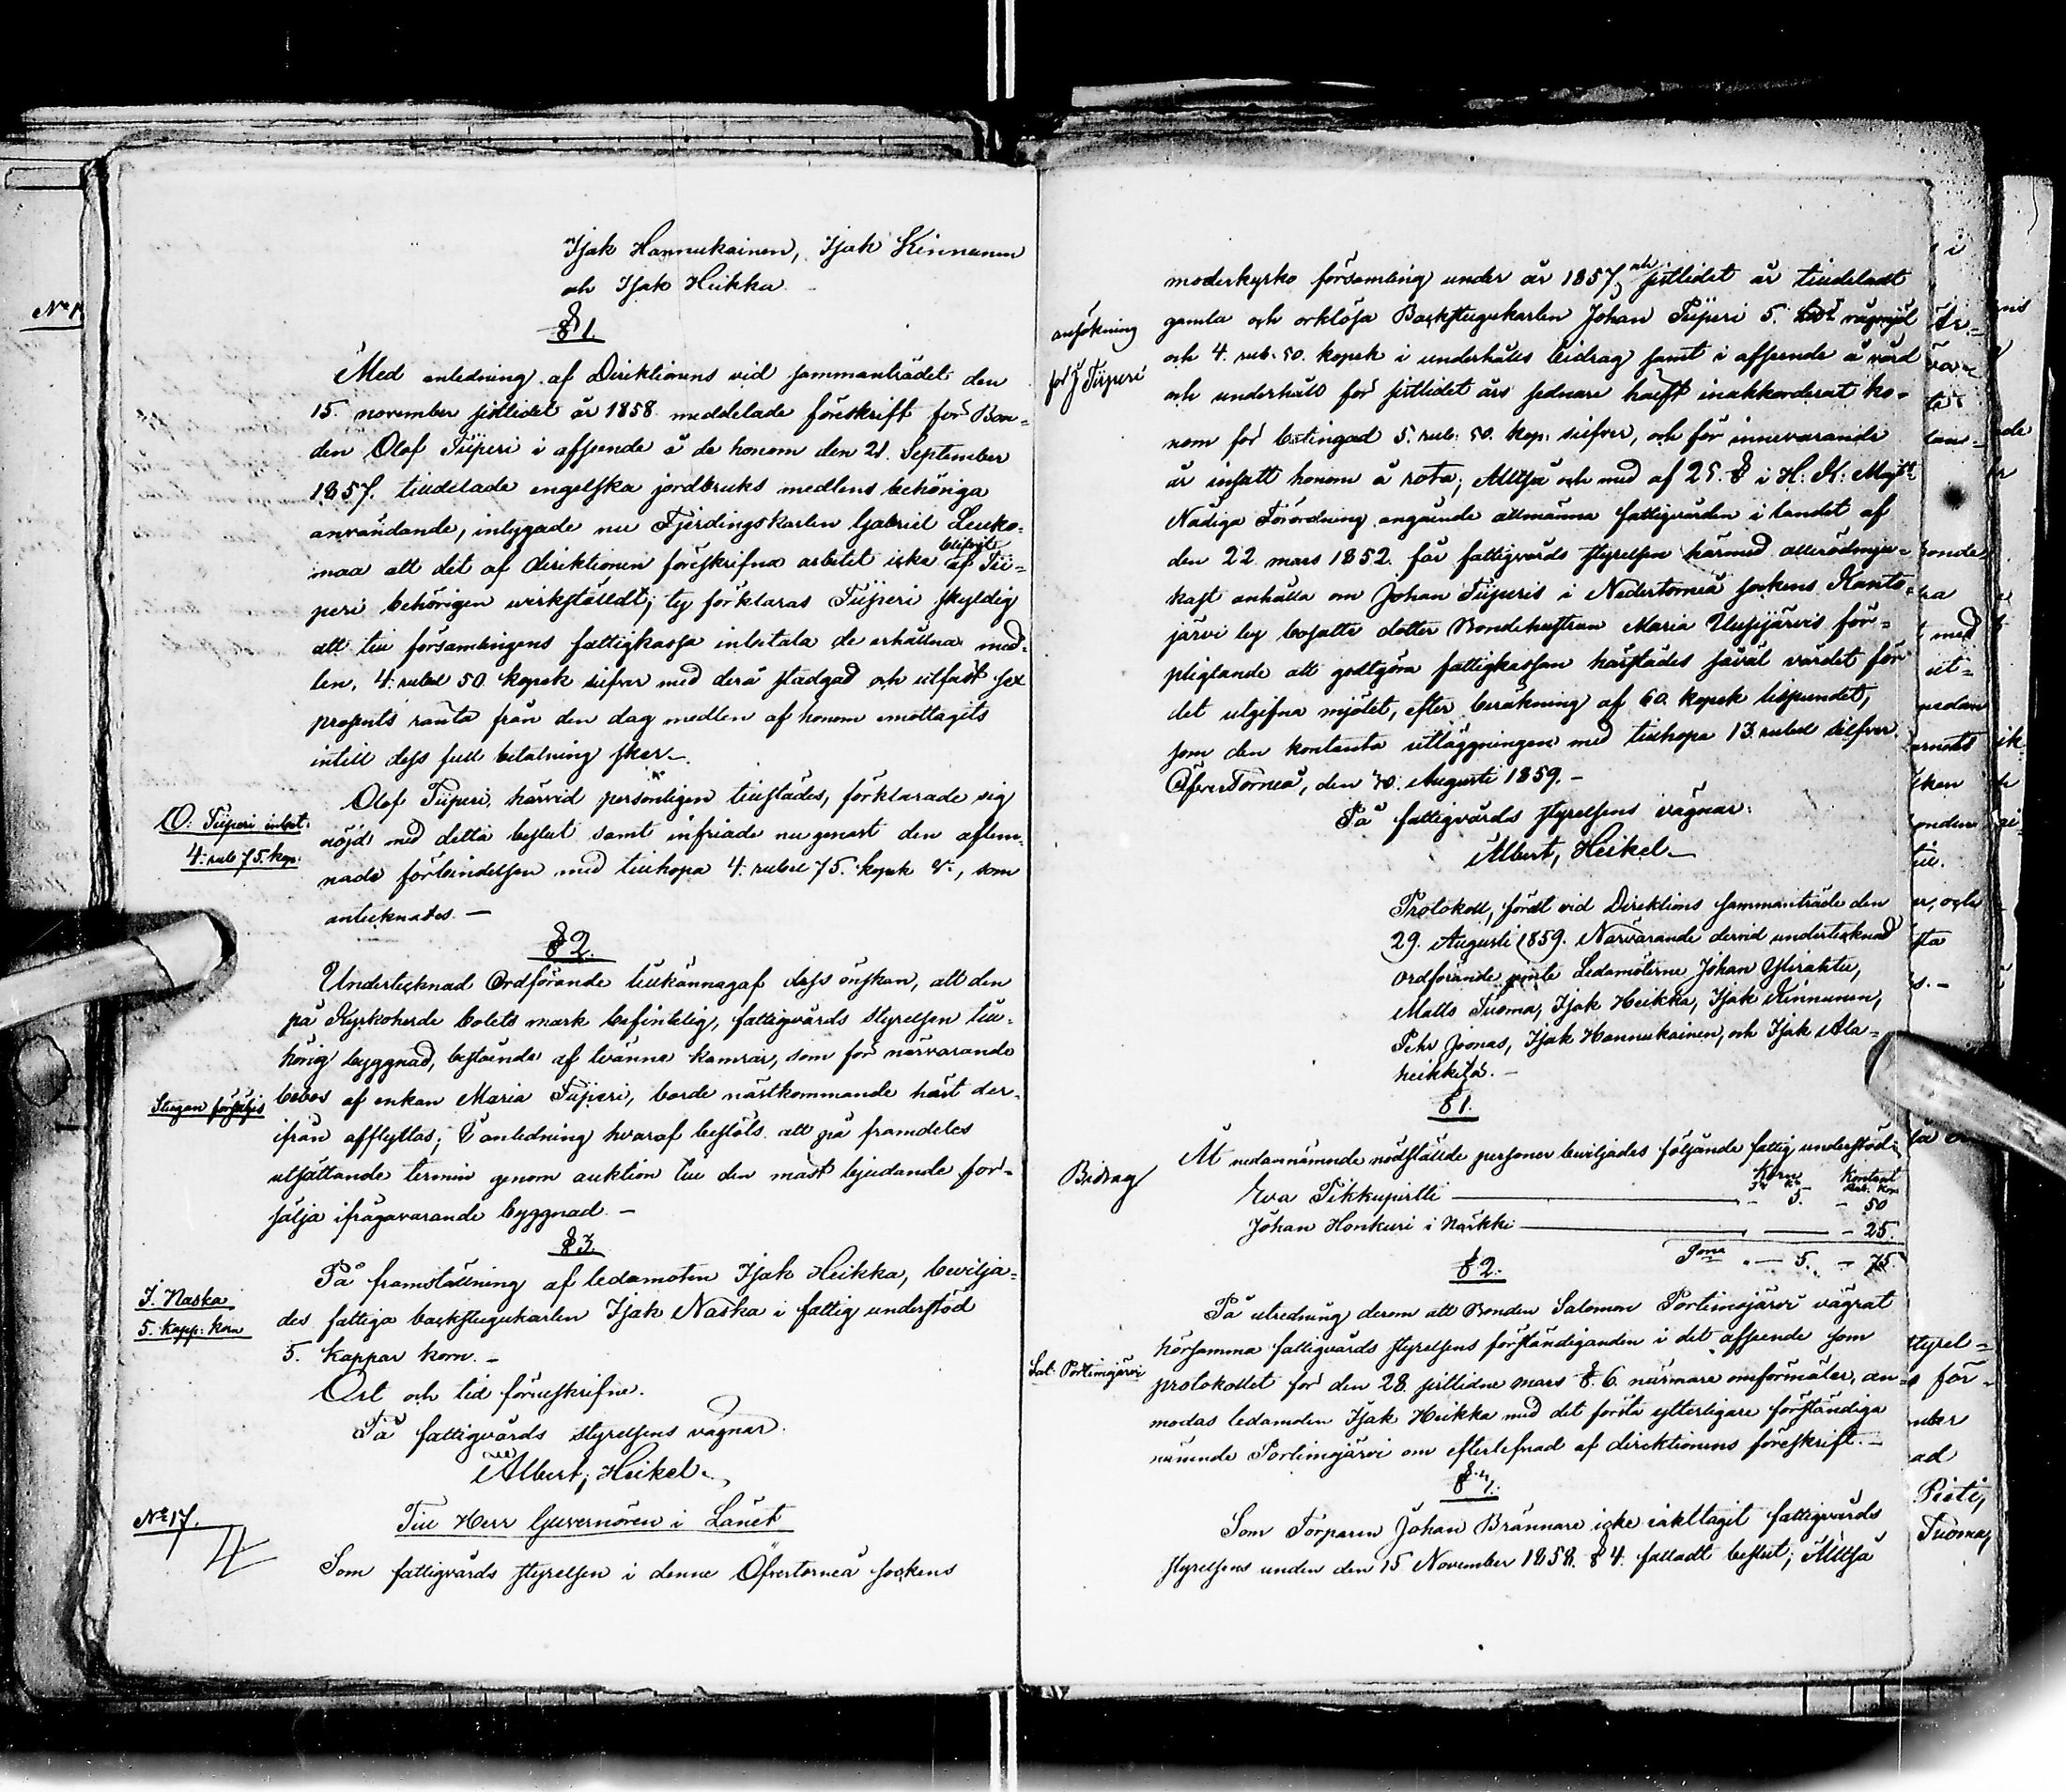 Isak Hannukainen, Isak Kinnunen
och Isak Heikka.
§ 1.
Med anledning af Direktionens vid sammanträdet den
15. november sistlidet år 1858. meddelade föreskrift för Bon-
den Olof Tiiperi i afseende å de honom den 21. September
1857. tilldelade engelska jordbruks medlens behöriga
användande, intygade nu Fjerdingskarlen Gabriel Leuko-
maa att det af direktionen föreskrifna arbetet icke blifvit af Tii-
peri behörigen verkställdt; ty förklaras Tiiperi skyldig
att till församlingens fattigkassa inbetala de erhållna med-
len, 4. rubel 50. kopek silfver med derå stadgad och utfäst sex
procents ränta från den dag medlen af honom emottagits
intill dess full betalning sker.
O: Tiiperi inbet:
4: rub 75. kop:
Olof Tiiperi, härvid personligen tillstädes, förklarade sig
nöjd med detta beslut samt infriade nu genast den aflem-
nade förbindelsen med tillhopa 4. rubel 75. kopek sr, som
antecknades. —
§ 2.
Undertecknad Ordförande tillkännagaf dess önskan, att den
på Kyrkoherde bolets mark befintelig, fattigvårds styrelsen till-
hörig byggnad, bestående af tvänne kamrar, som för närvarande
Stugan försäljes
bebos af enkan Maria Tiiperi, borde nästkommande höst der-
ifrån afflyttas; I anledning hvaraf beslöts att på framdeles
utsättande termin genom auktion till den mäst bjudande för-
sälja ifrågavarande byggnad. —
§ 3.
På framställning af ledamoten Isak Heikka, bevilja-
I. Naska
5. kapp: korn
des fattiga backstugukarlen Isak Naska i fattig understöd
5. kappar korn. —
Ort och tid föruskrifne.
På fattigvårds styrelsens vägnar.
Albert, Heikel.
No 17.
Till Herr Guvernören i Länet
Som fattigvårds styrelsen i denne Öfvertorneå sockens
moderkyrko församling under år 1857, och sistlidet år tilldeladt
ansökning
för J Tiiperi
gamla och orklösa Backstugukarlen Johan Tiiperi 5. rågmjöl
och 4. rub: 50. kopek i underhålls bidrag samt i afseende å vård
och underhåll för sistlidet års sednare hälft inakkorderat ho-
nom för betingad 5. rub: 50. kop: silfver, och för innevarande
år insatt honom å rota; Alltså och med af 25. § i H: K: Majts
Nådiga Förordning angående allmänna fattigvården i landet af
den 22 mars 1852. får fattigvårds styrelsen härmed allerödmju-
kast anhålla om Johan Tiiperis i Nedertorneå sockens Kanto-
järvi by bosatte dotter Bondehustrun Maria Uusijärvis för-
pligtande att godtgöra fattigkassan härstädes såväl värdet för
det utgifna mjölet, efter beräkning af 60. kopek lispundet,
som den kontanta utläggningen med tillhopa 13. rubel silfver.
ÖfverTorneå, den 30. Augusti 1859. —
På fattigvårds styrelsens vägnar:
Albert, Heikel.
Protokoll, fördt vid Direktions sammanträde den
29. Augusti 1859. Närvarande dervid undertecknad
ordförande jemte Ledamöterne Johan Ylirahtu,
Matts Tuoma, Isak Heikka, Isak Kinnunen,
Pehr Joonas, Isak Hannukainen, och Isak Ala-
heikkilä. —
§ 1.
Åt nedannämnde nödstälde personer beviljades följande fattig understöd:
Bidrag
Korn Kontant
Tr K: Rub. Kop
Eva Pikkupirtti — 5. — 50
Johan Honkuri i Närkki — — 25.
Sma — 5. — 75
§ 2.
På utredning derom att Bonden Salomon Portimojärvi vägrat
hörsamma fattigvårds styrelsens förständiganden i det afseende som
Sal: Portimojärvi
protokollet för den 28. sistlidne mars §. 6. närmare omförmäler, an-
modas ledamoten Isak Heikka med det första ytterligare förständiga
nämnde Portimojärvi om efterlefnad af direktionens föreskrift. —
Som Torparen Johan Brännare icke iakttagit fattigvårds
styrelsens under den 15 November 1858. § 4. fattadt beslut; Alltså